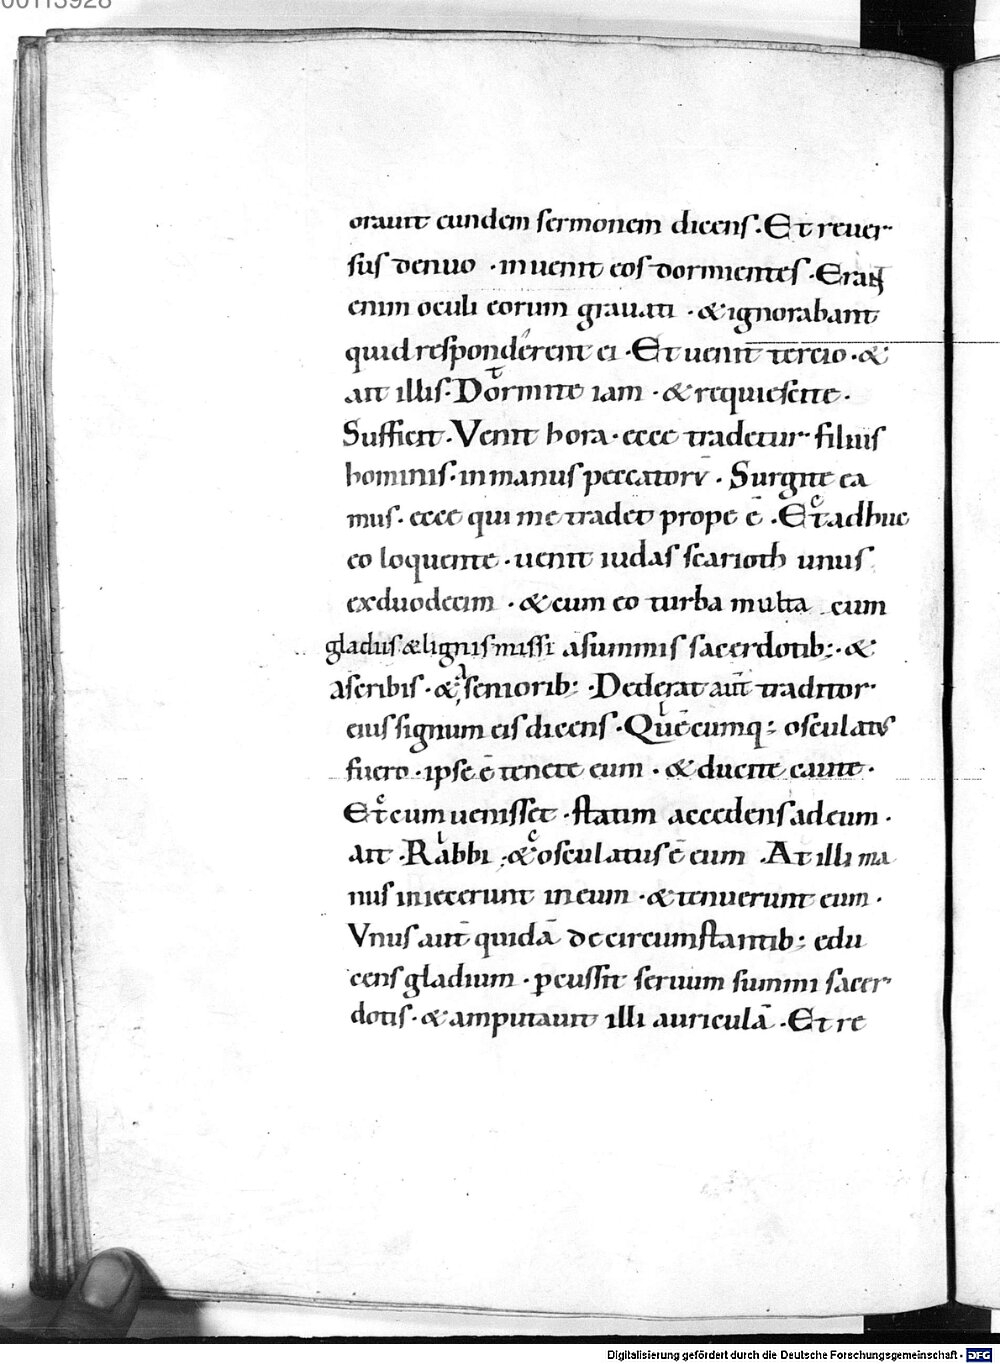 00113928
orauit eundem sermonem dicens. Et reuer-
sus denuo. inuenit eos dormientes. Erant
enim oculi eorum grauati. & ignorabant
quid responderent ei. Et uenit tercio. &
ait illis. Dormite iam. & requiescite.
Sufficit. Venit hora. ecce tradetur filius
hominis. in manus peccatorū. Surgite ea
mus. ecce qui me tradet prope ē. Et adhuc
eo loquente. uenit iudas scarioth unus
ex duodecim. & cum eo turba multa cum
gladiis & lignis missi a summis sacerdotib;. &
a scribis. & a seniorib;. Dederat aūt traditor
eius signum eis dicens. Quēcumq; osculatus
fuero. ipse ē tenete eum. & ducite caute.
Et cum uenisset. statim accedens ad eum.
ait. Rabbi. & osculatus ē eum. At illi ma
nus iniecerunt in eum. & tenuerunt eum.
Vnus aūt quidā de circumstantib; edu
cens gladium. pcussit seruum summi sacer-
dotis. & amputauit illi auriculā. Et re
Digitalisierung gefördert durch die Deutsche Forschungsgemeinschaft - DFG